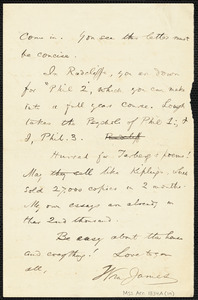 Come in. You see this letter must
be concise.
In Radcliffe, you are down
for "Phil 2", which you can make
take a full year course. Lough
takes the Psychol of Phil 1; &
I, Phil. 3.
Hurrah for Tarberg's poems!
May they sell like Kipling's, which
sold 27,000 copies in 2 months.
My own essays are already in
their 2nd thousand.
Be easy about the house
and everything! Love to you
all,
Wm James
MS Am